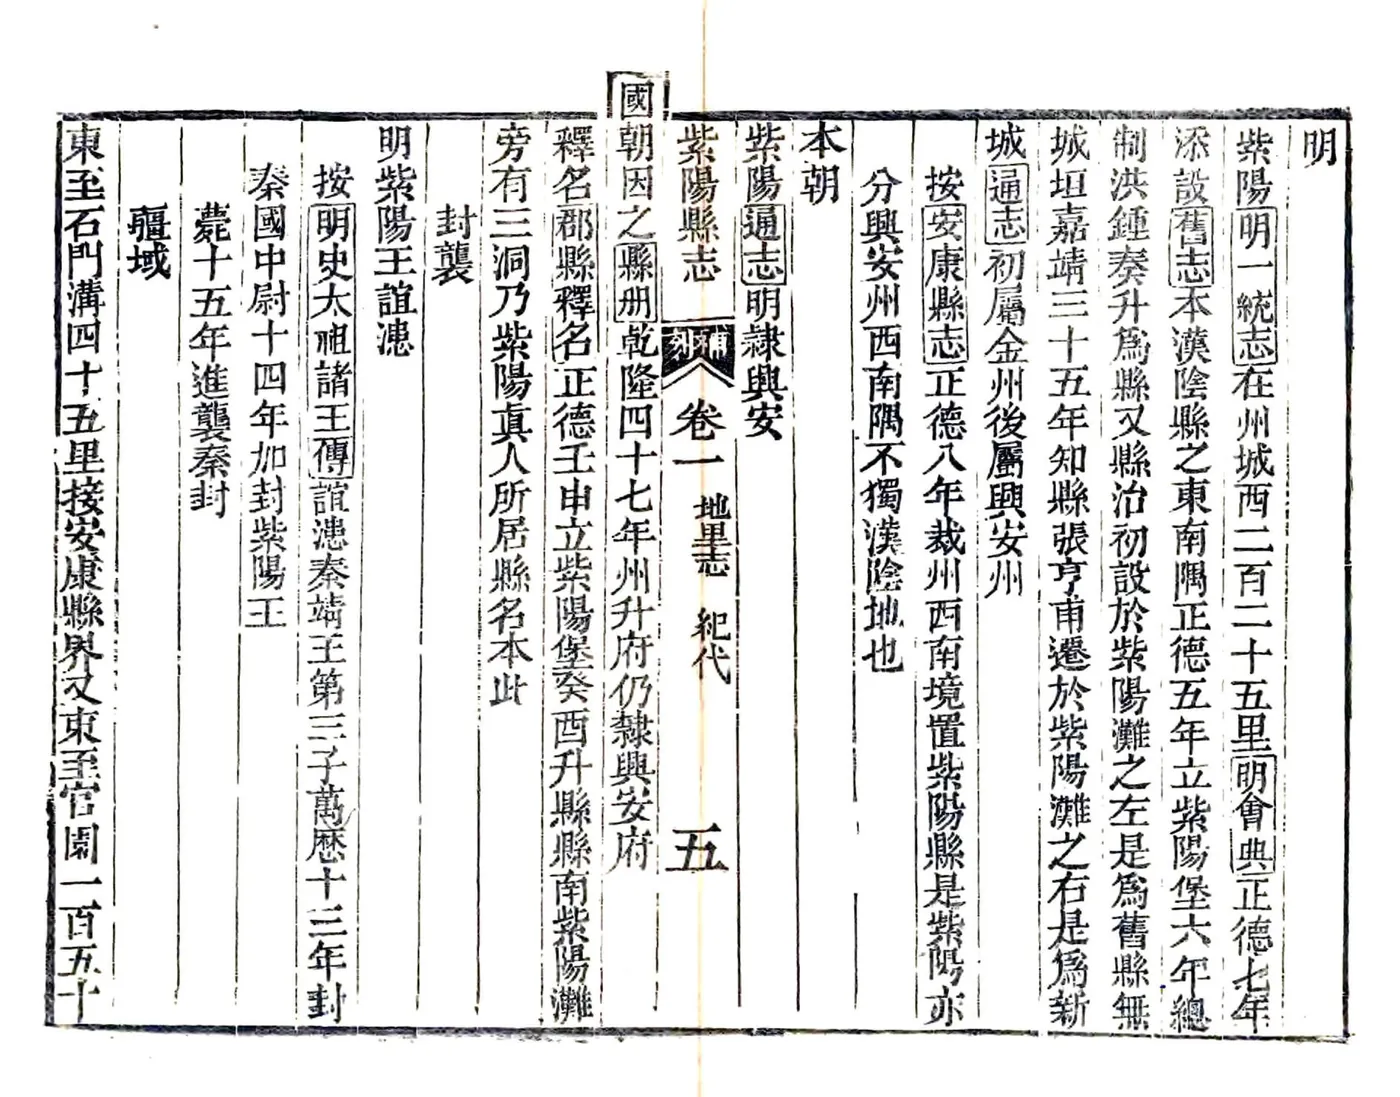 明
紫陽明一統志在州城西二百二十五里明會典正德七年
添設舊志本漢陰縣之東南隅正德五年立紫陽堡六年總
制洪鍾奏升爲縣又縣治初設於紫陽灘之左是爲舊縣無
城垣嘉靖三十五年知縣張亨甫遷於紫陽灘之右是爲新
城通志初屬金州後屬興安州
按安康縣志正德八年裁州西南境置紫陽縣是紫陽亦
分興安州西南隅不獨漢陰地也
本朝
紫陽通志明隸興安
紫陽縣志 補刻 卷一 地里志 紀代 五
國朝因之縣册乾隆四十七年州升府仍隸興安府
釋名郡縣釋名正德壬申立紫陽堡癸酉升縣縣南紫陽灘
旁有三洞乃紫陽真人所居縣名本此
封襲
明紫陽王誼漶
按明史太祖諸王傳誼漶秦靖王第三子萬歷十三年封
秦國中尉十四年加封紫陽王
薨十五年進襲秦封
疆域
東至石門溝四十五里接安康縣界又東至官園一百五十